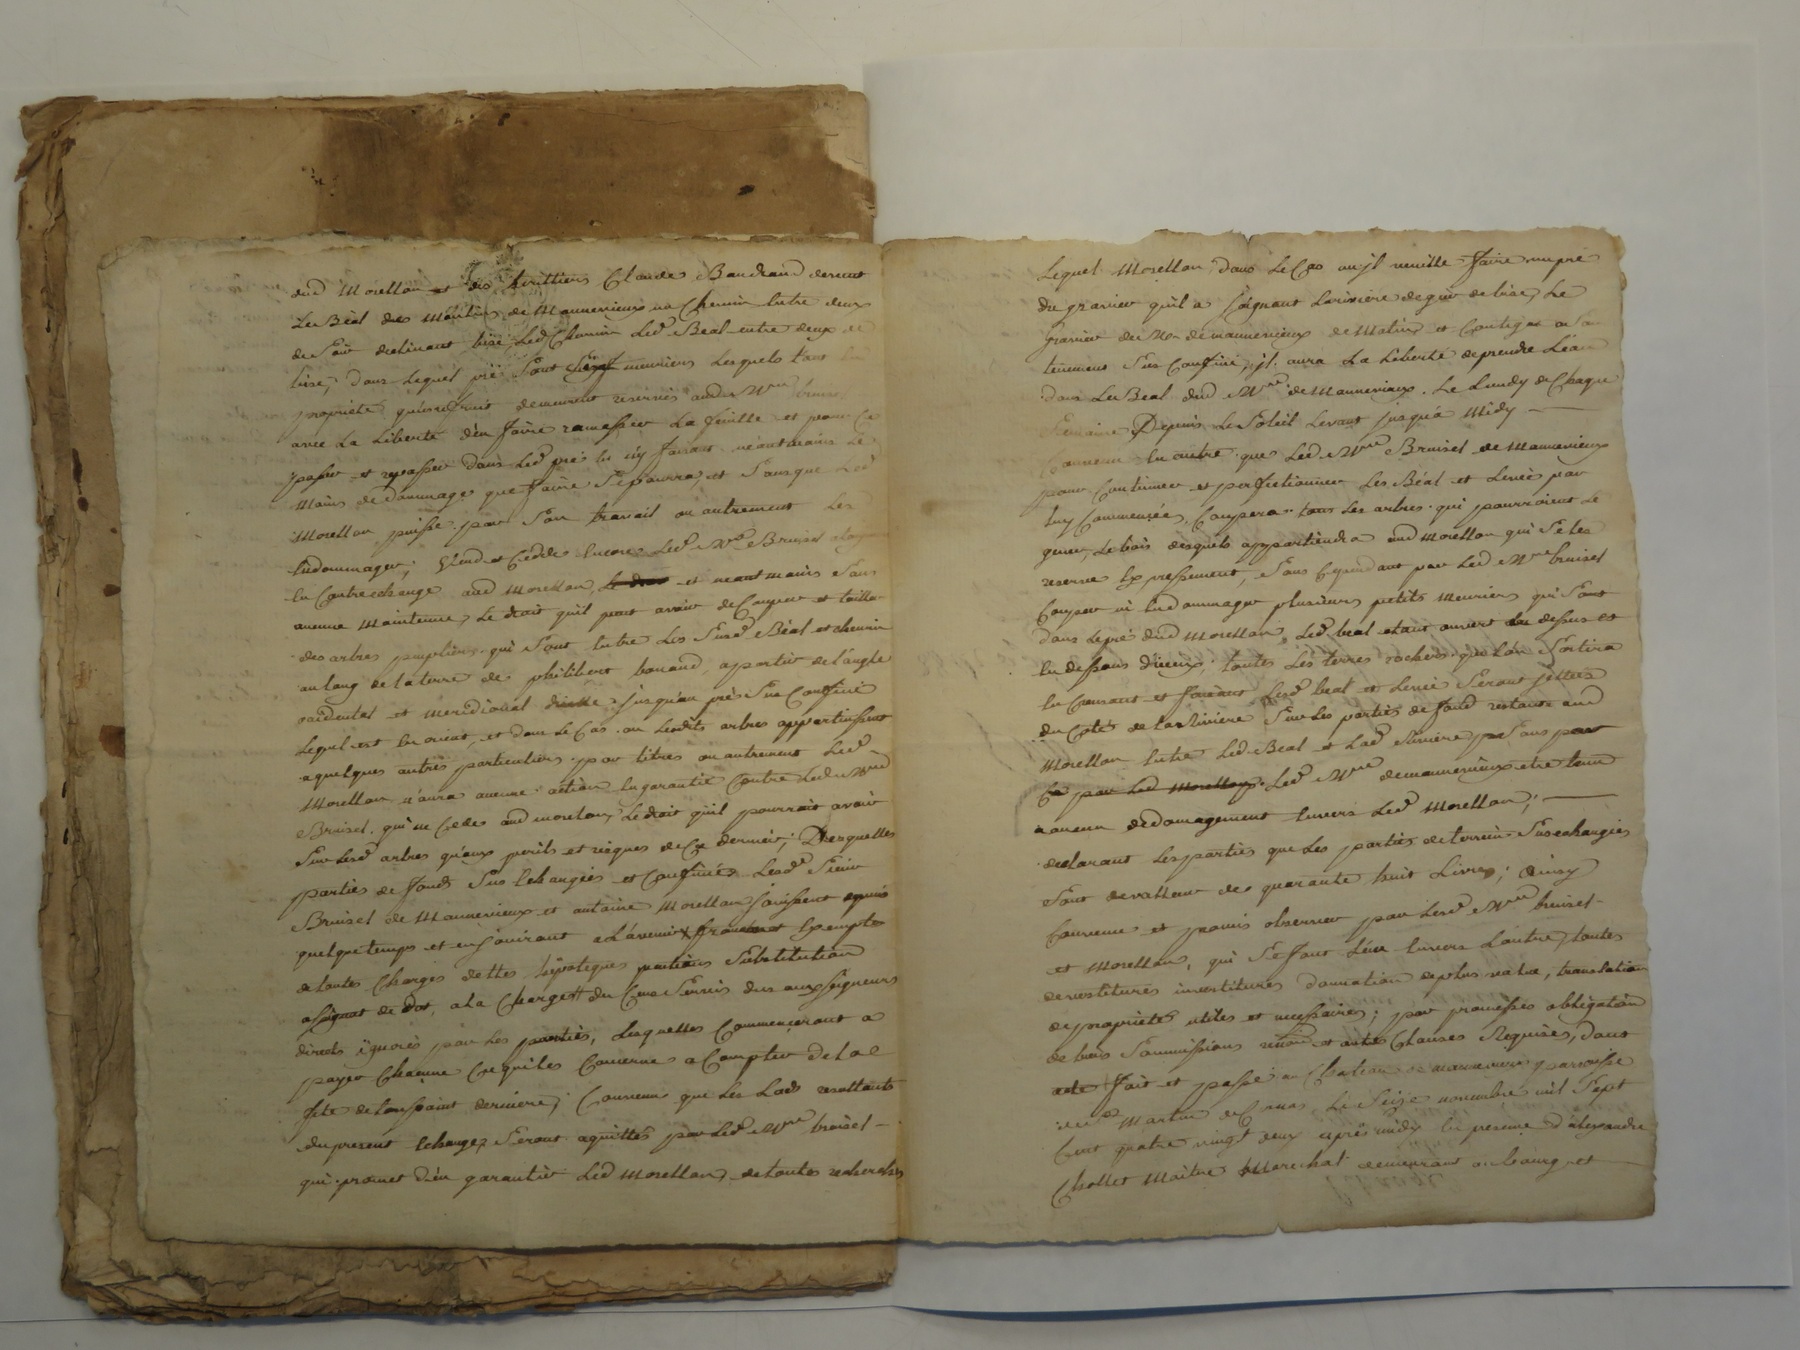 dud Morellon et des heritiers Claude Baudrand devent
Les Béal des Moulins de Mannevieux un Chemin Entre deux
de Soir declinant bise, Led. Chemin Led. Beal entre deux de
bise, dans Lequel pré Sont Cinq meuriers Lesquels tant en
propriété qu'usufruit demeurent reservés aud. Mre bruisel
avec La Liberté d'en faire ramasser La feuille et pour Ce
passer et repasser dans Led. pré En n'y faisant néantmoins Le
Moins de dommage que faire Se pourra, et Sans que Led.
Morellon puisse par Son travail ou autrement Les
Endommager; Vend et Cede Encore Led. Mre Bruisel
En Contrechange aud Morellon, et neantmoins Sans
aucune Maintenue, Le droit quil peut avoir de Couper et tailler
des arbres peupliers qui Sont Entre Les Susd. Béal et chemin
au long de la terre de philibert bonand, apartir de l'angle
occidental et meridional d'icelle jusqu'au pré Sus Confiné
Lequel est En orient, et dans Le Cas ou Lesdits arbres appartinssent
a quelques autres particuliers par titres ou autrement Led.
Morellon n'aura aucune action En garantie Contre Led. Mre
Bruisel qui ne Cede aud morelon, Le droit qu'il pourroit avoir
Sur Lesd. arbres qu'aux perils et risques de Ce dernier; Desquelles
parties de fonds Sus Echangées et Confinées Lesd. Sieur
Bruisel de Mannevieux et antoine Morellon jouissent depuis
quelque temps et en jouiront a L'avenir franches et Exempts
de toutes Charges dettes hipoteques pentions Substitution
assignat de dot, a la Charge du Cens Servis dus aux Seigneurs
directs ignorés par Les parties, Lesquelles Commenceront a
payer Chacune Ce qui les Concerne a Compter de La
fete de toussaint derniere; Convenu que Les Lods resultants
du present Echange Seront aquittés par Led. Mre bruisel
qui promet d'en garantir Led Morellon, de toutes recherches
Lequel Morellon, dans Le Cas ou jl veuille faire un pré
du gravier qu'il a joignant La riviere de gier de bise, Le
gravier de Mr de mannevieux de Matin et Contigue a Son
tenement Sus Confiné, jl aura La Liberté de prendre L'eau
dans Les Beal dud Mre de Mannevieux. Le Lundy de Chaque
Semaine Depuis Le Soleil Levant jusqu'a Midy
Convenu En outre que Led. Mre Bruisel de Mannevieux
pour Continuer et perfectionner Les Béal et Levée par
luy Commencées, Coupera tous Les arbres qui pourroient Le
gener, Le bois desquels appartiendra aud Morellon qui Se Les
reserve Expressement, Sans Cependant par Led Mre bruisel
Couper ni Endommager plusieurs petits meuriers qui Sont
dans Le pré dud Morellon, Led. beal etant ouvert au dessus et
En dessous d'iceux; toutes Les terres rochers que L'on Sortira
En Creusant et faisant Lesd. beal et Levée Seront jettées
du Coté de La Riviere Sur Les parties de fond restants aud
Morellon Entre Led. Beal et Lad. Riviere Sans pour
Ce par Led Morellon Led. Mre de mannevieux etre tenu
a aucun dedomagement Envers Led. Morellon;
declarant Les parties que Les parties de terrein Sus echangées
Sont de valleur de quarante huit Livres; Ainsy
Convenu et promis observer par Lesd. Mre bruisel
et Morellon, qui Se font L'un Envers L'autre, toutes
devestitures investitures donnation de plus value, translation
de propriété utiles et necessaires; par promesses obligation
de biens Soumissions renon. et autres Clauses Requises, dont
acte fait et passé au Chateau de mannevieux parroisse
de St Martin de Cornas Le Seize novembre mil Sept
Cent quatre vingt deux après midy En presence d'alexandre
Chollet Maitre Marechal demeurant au bourg et